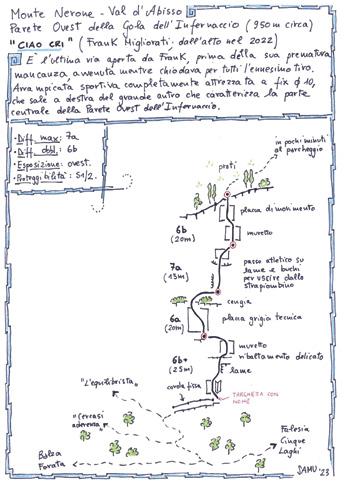 Monte Nerone - Val d'Abisso
Parete Ovest della Gola dell'Infernaccio (950m circa)
"CIAO CRI" (Frank Migliorati: dall'alto nel 2022)
E' l'ultima via aperta da Frank, prima della sua prematura
mancanza, avvenuta mentre chiodava per tutti l'ennesimo tiro.
Arrampicata sportiva completamente attrezzata a fix ø 10,
che sale a destra del grande antro che caratterizza la parte
centrale della Parete Ovest dell'Infernaccio.
• Diff max: 7a
• Diff obbl: 6b
• Esposizione: ovest.
• Proteggibilità: S1/2.
in pochi minuti
al parcheggio
prati
placca di movimento
6b
(20m)
muretto
7a
(15m)
passo atletico su
lame e buchi
per uscire dallo
strapiombino
cengia
6a
(20m)
placca grigia tecnica
muretto
ribaltamento delicato
6b+
(25m)
lame
corda fissa
TARGHETTA CON
NOME
"L'equilibrista"
"Cercasi
aderenza"
Balza
Forata
Falesia
Cinque
Laghi
SAMU '23